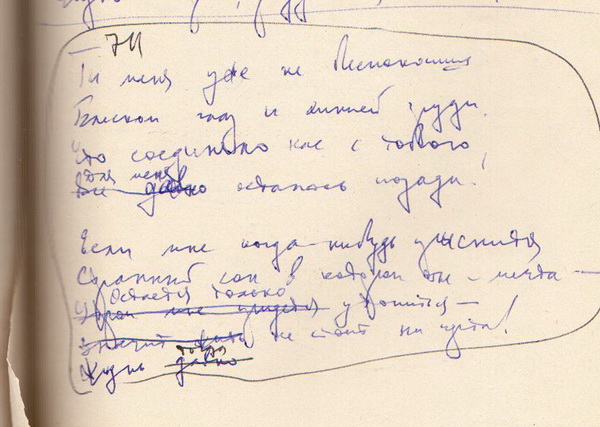 Ты меня уже не беспокоишь
Блеском глаз и линией груди.
Что соединяло нас с тобою,
Для меня
Все давно осталось позади!
Если мне когда-нибудь приснится
Странный сон в котором ты – мечта –
Остается только
Утром мне придется утопиться –
Значит не стоит ни черта!
Жизнь давно